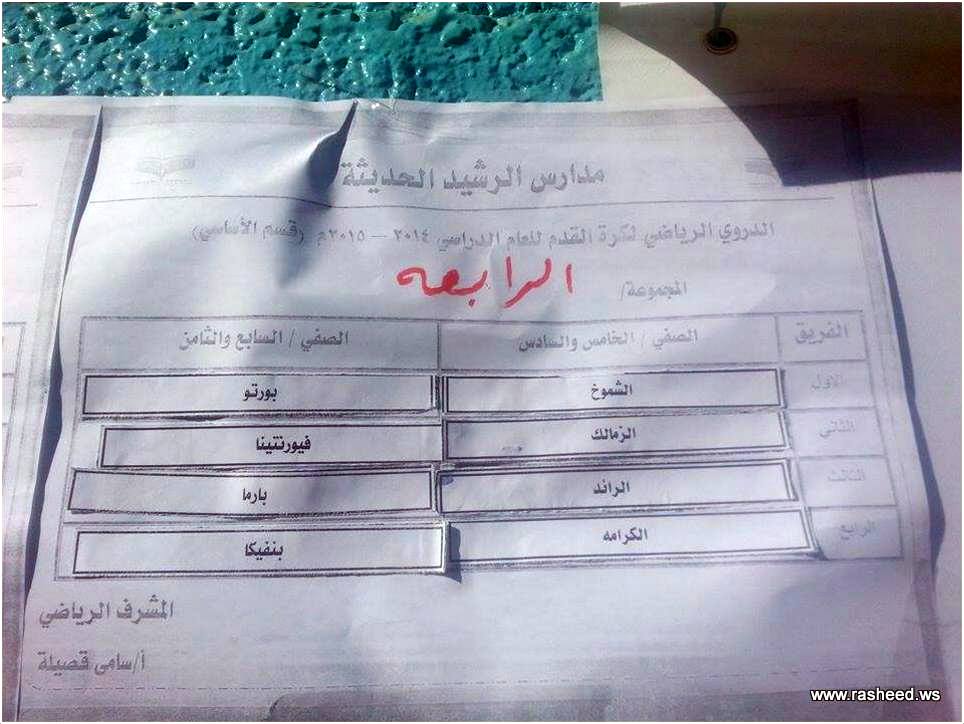 مدارس الرشيد الحديثة
الدروي الرياضي لكرة القدم للعام الدراسي ٢٠١٤ – ٢٠١٥م (قسم الأساسي)
المجموعة/ الرابعه
الفريق الصفي / الخامس والسادس الصفي / السابع والثامن
الاول الشموخ بورتو
الثاني الزمالك فيورنتينا
الثالث الرائد بارما
الرابع الكرامه بنفيكا
المشرف الرياضي
أ/سامي قصيلة
www.rasheed.ws